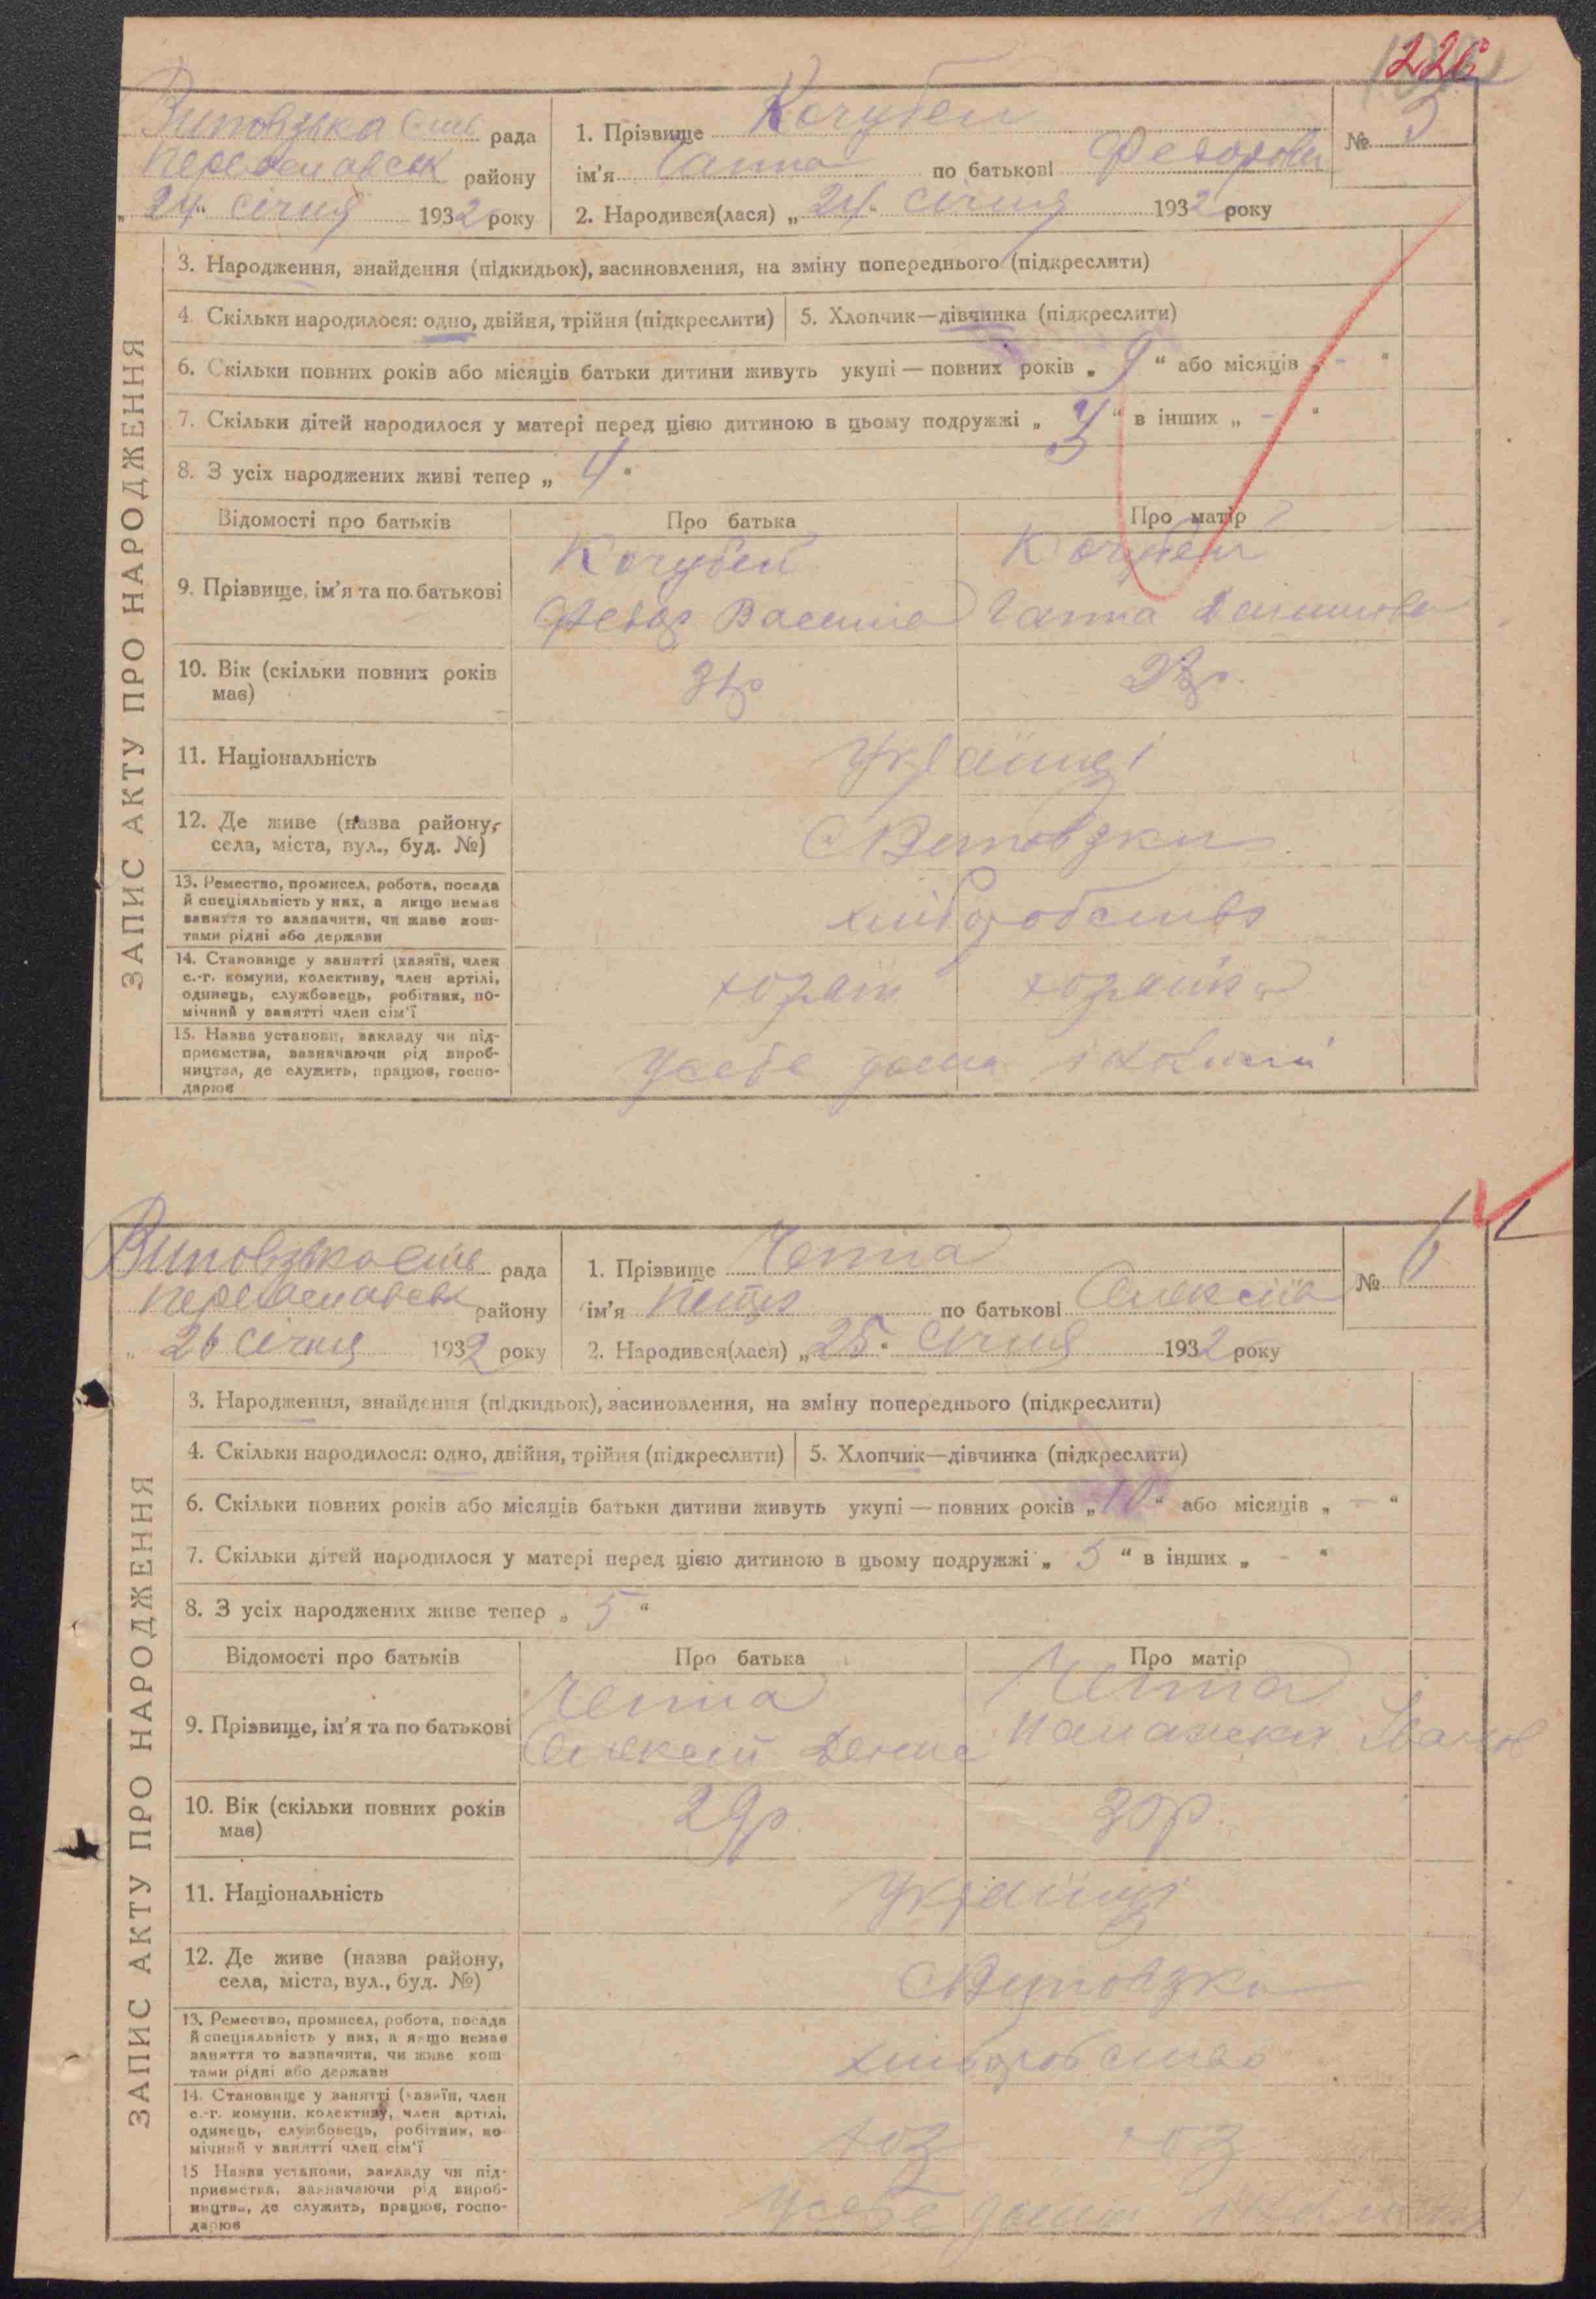 226
Виповзька Сіль рада
Переяславськ району
„24“ січня 1932 року
1. Прізвище Кочубей
ім'я Ганна по батькові Федорови
2. Народився(лася) „24“ січня 1932 року
№ 5
ЗАПИС АКТУ ПРО НАРОДЖЕННЯ
3. Народження, знайдення (підкидьок), засиновлення, на зміну попереднього (підкреслити)
4. Скільки народилося: одно, двійня, трійня (підкреслити) 5. Хлопчик—дівчинка (підкреслити)
6. Скільки повних років або місяців батьки дитини живуть укупі — повних років „ 9 “ або місяців „ - “
7. Скільки дітей народилося у матері перед цією дитиною в цьому подружжі „ 3 “ в інших „ - “
8. З усіх народжених живі тепер „ 4 “
Відомості про батьків Про батька Про матір
9. Прізвище, ім'я та по батькові
Кочубей Кочубей
Федор Василів Ганна
10. Вік (скільки повних років має)
31р
11. Національність
Українці
12. Де живе (назва району, села, міста, вул., буд. №)
С Виповзки
13. Ремество, промисел, робота, посада й спеціяльність у них, а якщо немає заняття то зазначити, чи живе коштами рідні або держави
хліборобство
14. Становище у занятті (хазяїн, член с.-г. комуни, колективу, член артілі, одинець, службовець, робітник, помічний у занятті член сім'ї
хозяїн хозяйка
15. Назва установи, закладу чи підприємства, зазначаючи рід виробництва, де служить, працює, господарює
У себе дома
Виповзька сіль рада
Переяславськ району
„ 26 січня 1932 року
1. Прізвище Чепіга
ім'я Петро по батькові Олексіїв
2. Народився(лася) „25“ Січня 1932 року
№ 6
ЗАПИС АКТУ ПРО НАРОДЖЕННЯ
3. Народження, знайдення (підкидьок), засиновлення, на зміну попереднього (підкреслити)
4. Скільки народилося: одно, двійня, трійня (підкреслити) 5. Хлопчик—дівчинка (підкреслити)
6. Скільки повних років або місяців батьки дитини живуть укупі — повних років „ 10 “ або місяців „ — “
7. Скільки дітей народилося у матері перед цією дитиною в цьому подружжі „ 5 “ в інших „ - “
8. З усіх народжених живе тепер „ 5 “
Відомості про батьків Про батька Про матір
9. Прізвище, ім'я та по батькові
Чепіга Чепіга
Олексій Іванов
10. Вік (скільки повних років має)
29р. 30р.
11. Національність
Українці
12. Де живе (назва району, села, міста, вул., буд. №)
С Виповзки
13. Ремество, промисел, робота, посада й спеціяльність у них, а якщо немає заняття то зазначити, чи живе коштами рідні або держави
хліборобство
14. Становище у занятті (хазяїн, член с.-г. комуни, колективу, член артілі, одинець, службовець, робітник, помічний у занятті член сім'ї
хоз хоз
15 Назва установи, закладу чи підприємства, зазначаючи рід виробництва, де служить, працює, господарює
У себе дома